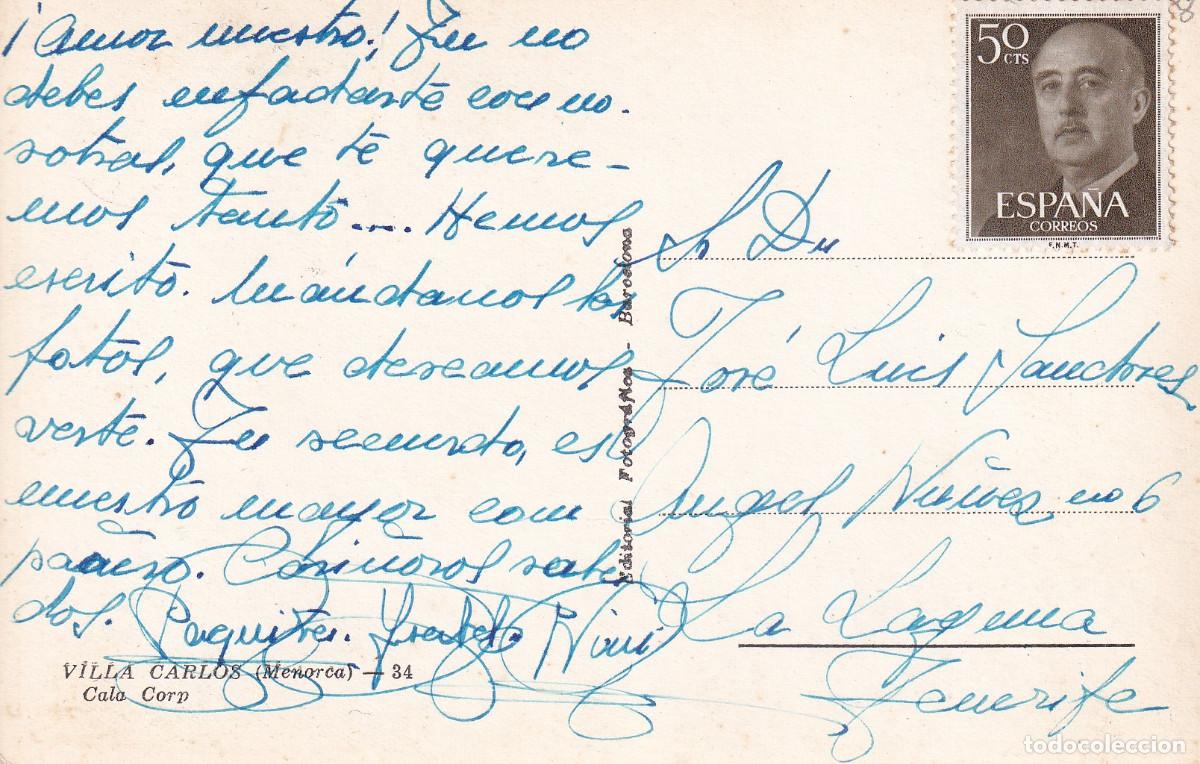 ¡Amor nuestro! Tu no
debes enfadarte con no-
sotras, que te quere-
mos tanto... Hemos
escrito. Mándanos las
fotos, que deseamos
verte. Tu recuerdo, es
nuestro mayor com
pañero. Cariñosos salu
dos. Paquita. Isabel. Nini
VILLA CARLOS (Menorca) — 34
Cala Corp
Editorial Fotográfica - Barcelona
50
CTS
ESPAÑA
CORREOS
F.N.M.T.
Sr Dn
José Luis
Angel Núñez no 6
La Laguna
Tenerife
todocoleccion